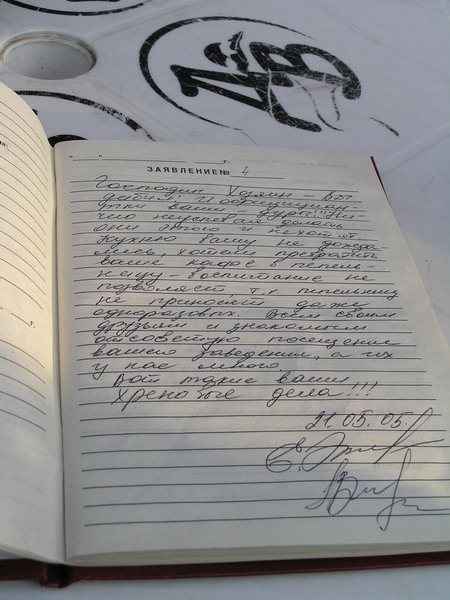 ДВ
" " г.
ЗАЯВЛЕНИЕ № 4
Господин Хозяин – Вы
и официант-
ки ваши дуры!!! Ни-
чего неуспевая делать
они этого и не хотят
Кухню вашу не дожда-
лись хотели превратить
ваше кафе в пепель
ницу – воспитание не
позволяет, т.к. пепельниц
не приносят даже
одноразовых. Всем своим
друзьям и знакомым
отсоветую посещение
вашего заведения, а их
у нас много.
Вот такие ваши
хреновые дела!!!
21.05.05.
г.